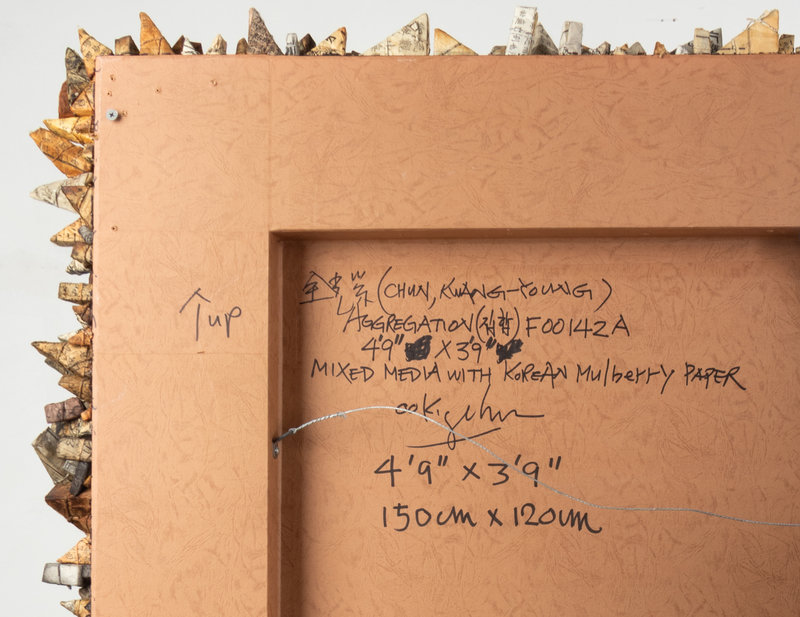 ↑up
全光榮 (CHUN, KWANG-YOUNG)
AGGREGATION(집합) F00142A
4'9" X 3'9"
MIXED MEDIA WITH KOREAN MulbeRRy PAPER
4'9" x 3'9"
150cm x 120cm